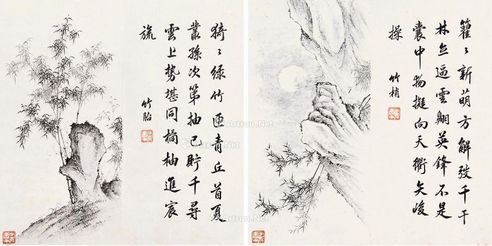 籜〻新萌方解弢千千
林立逼雲翺英鋒不是
囊中物挺向天衢矢峻
操
竹梢
猗〻綠竹匝青丘首夏
叢孫次第抽已貯千尋
雲上勢堪同橘柚進宸
旒
竹胎